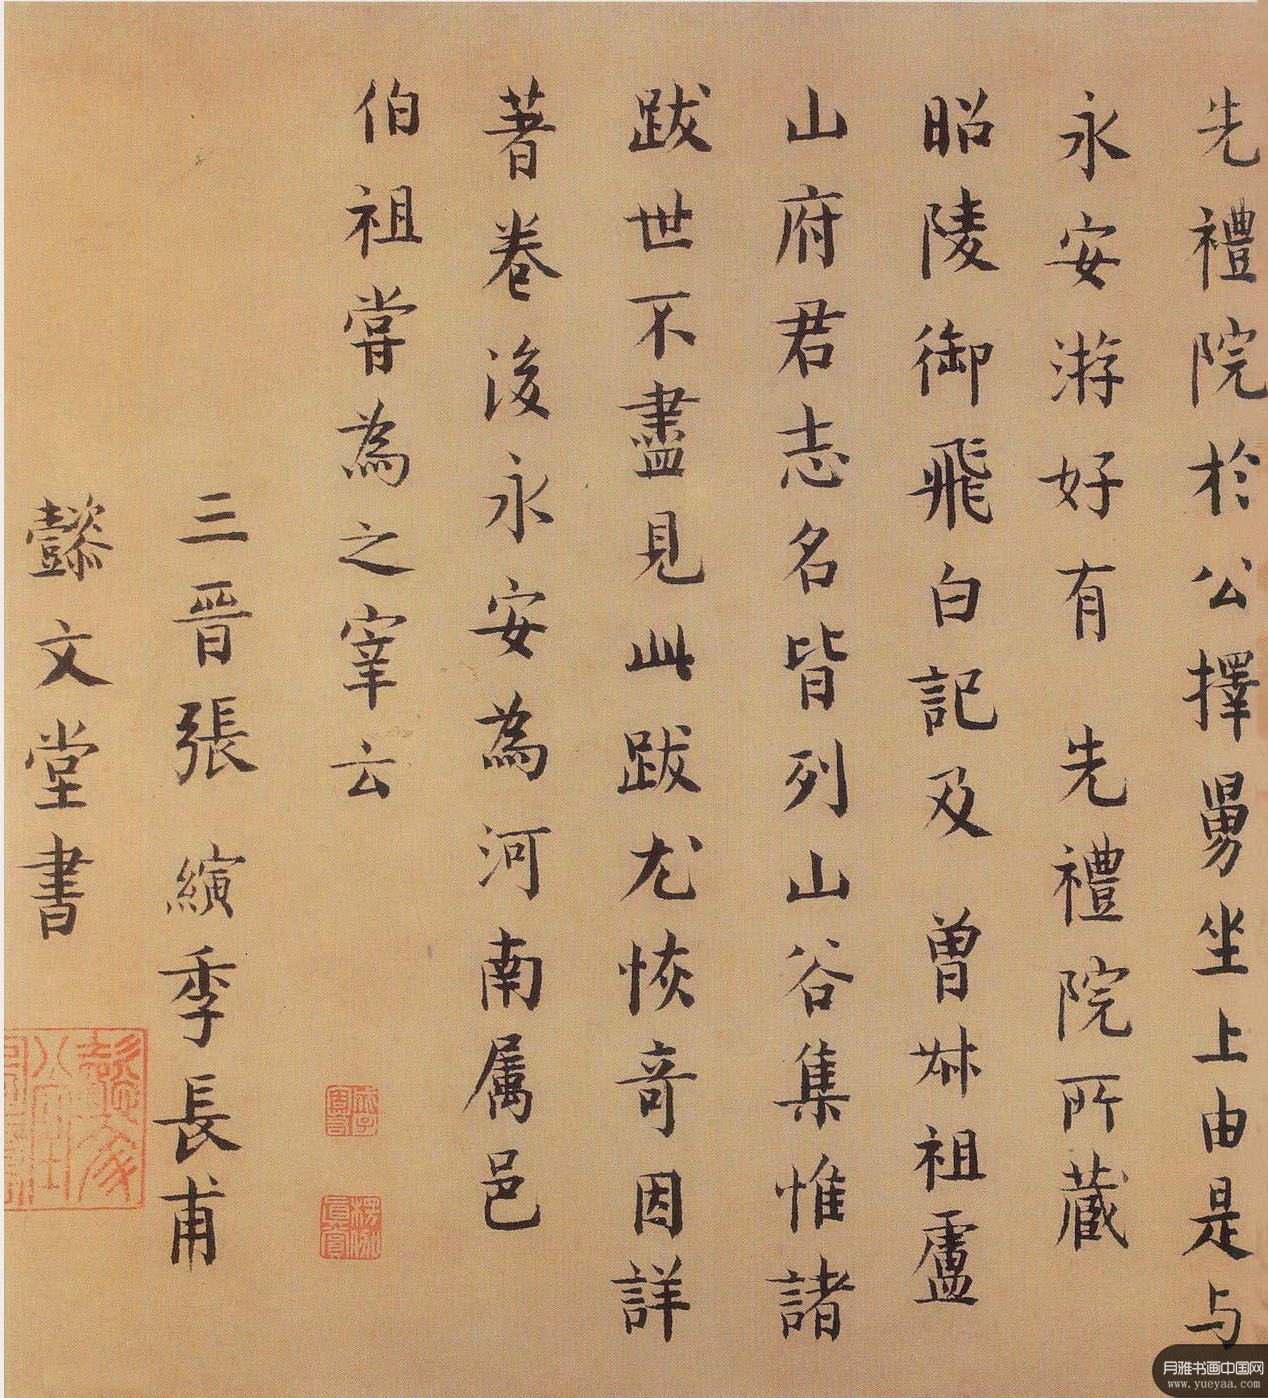 先禮院於公擇舅坐上由是与
永安游好有 先禮院所藏
昭陵御飛白記及 曾叔祖盧
山府君志名皆列山谷集惟諸
跋世不盡見此跋尤恢奇因詳
著卷後永安為河南屬邑
伯祖嘗為之宰云
三晋張 縯季長甫
懿文堂書
月雅书画中国网
www.yueyaa.com